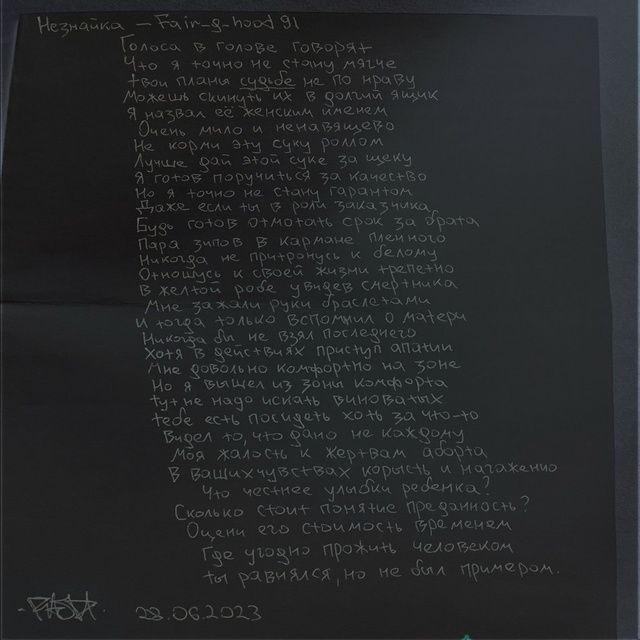 Незнайка – Fair_g_hood 91
Голоса в голове говорят
Что я точно не стану мягче
твои планы судьбе не по нраву
Можешь скинуть их в долгий ящик
Я назвал её женским именем
Очень мило и ненавящево
Не корми эту суку роллом
Лучше дай этой суке за щеку
Я готов поручиться за качество
Но я точно не стану гарантом
Даже если ты в роли заказчика
Будь готов отмотать срок за брата
Пара зипов в кармане пленного
Никогда не притронусь к белому
Отношусь к своей жизни трепетно
В желтой робе увидев смертника
Мне зажали руки браслетами
и тогда только вспомнил о матери
Никогда бы не взял последнего
Хотя в действиях приступ апатии
Мне довольно комфортно на зоне
Но я вышел из зоны комфорта
тут не надо искать виноватых
тебе есть посидеть хоть за что-то
Видел то, что дано не каждому
Моя жалость к жертвам аборта
В ваших чувствах корысть и
Что честнее улыбки ребенка?
Сколько стоит понятие преданность?
Оцени его стоимость временем
Где угодно прожить человеком
ты равнялся, но не был примером.
28.06.2023